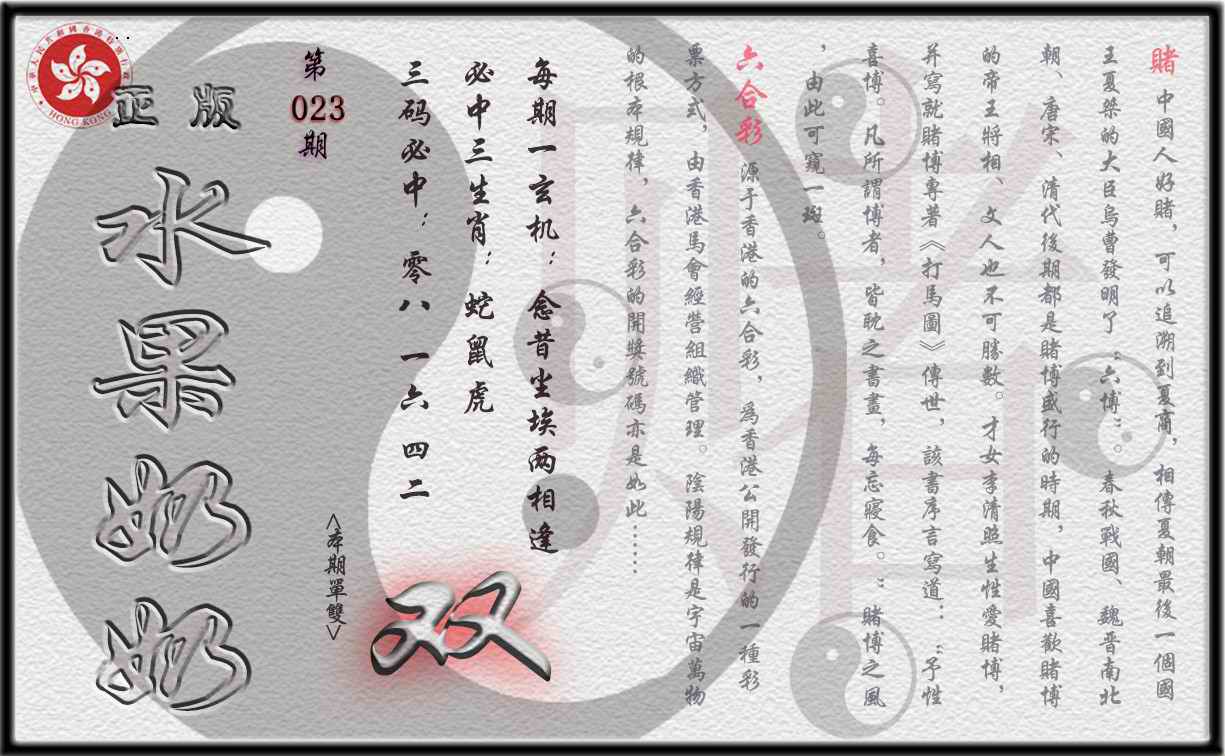 賭 中國人好賭，可以追溯到夏商，相傳夏朝最後一個國
王夏桀的大臣烏曹發明了“六博”。春秋戰國、魏晋南北
朝、唐宋、清代後期都是賭博盛行的時期，中國喜歡賭博
的帝王將相、文人也不可勝數。才女李清照生性愛賭博，
并寫就賭博專著《打馬圖》傳世，該書序言寫道：“予性
喜博。凡所謂博者，皆耽之書畫，每忘寢食。”賭博之風
，由此可窺一斑。
六合彩 源于香港的六合彩，爲香港公開發行的一種彩
票方式，由香港馬會經營組織管理。陰陽規律是宇宙萬物
的根本規律，六合彩的開獎號碼亦是如此……
每期一玄机：念昔尘埃两相逢
必中三生肖：蛇鼠虎
三码必中：零八 一六 四二
<本期單雙>
双
第
023
期
正版
水果奶奶
HONG KONG